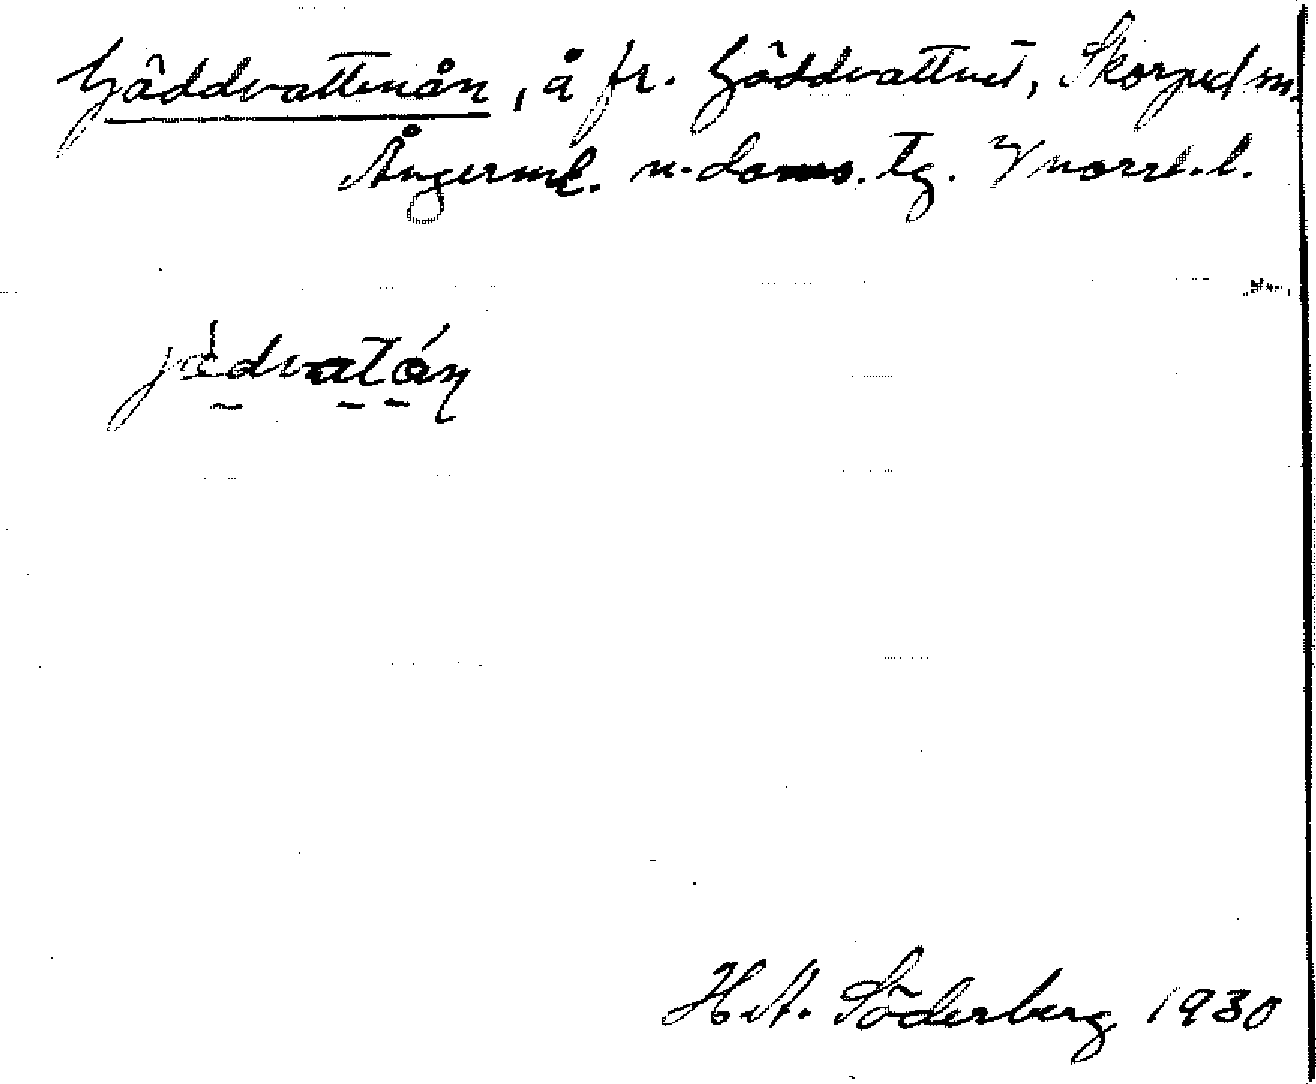 Gäddvattenån, å fr. Gäddvattnet, Skorped sn.
Ångerml. n. doms. tg. V norrl. l.
jädvatån
H. A. Söderberg 1930